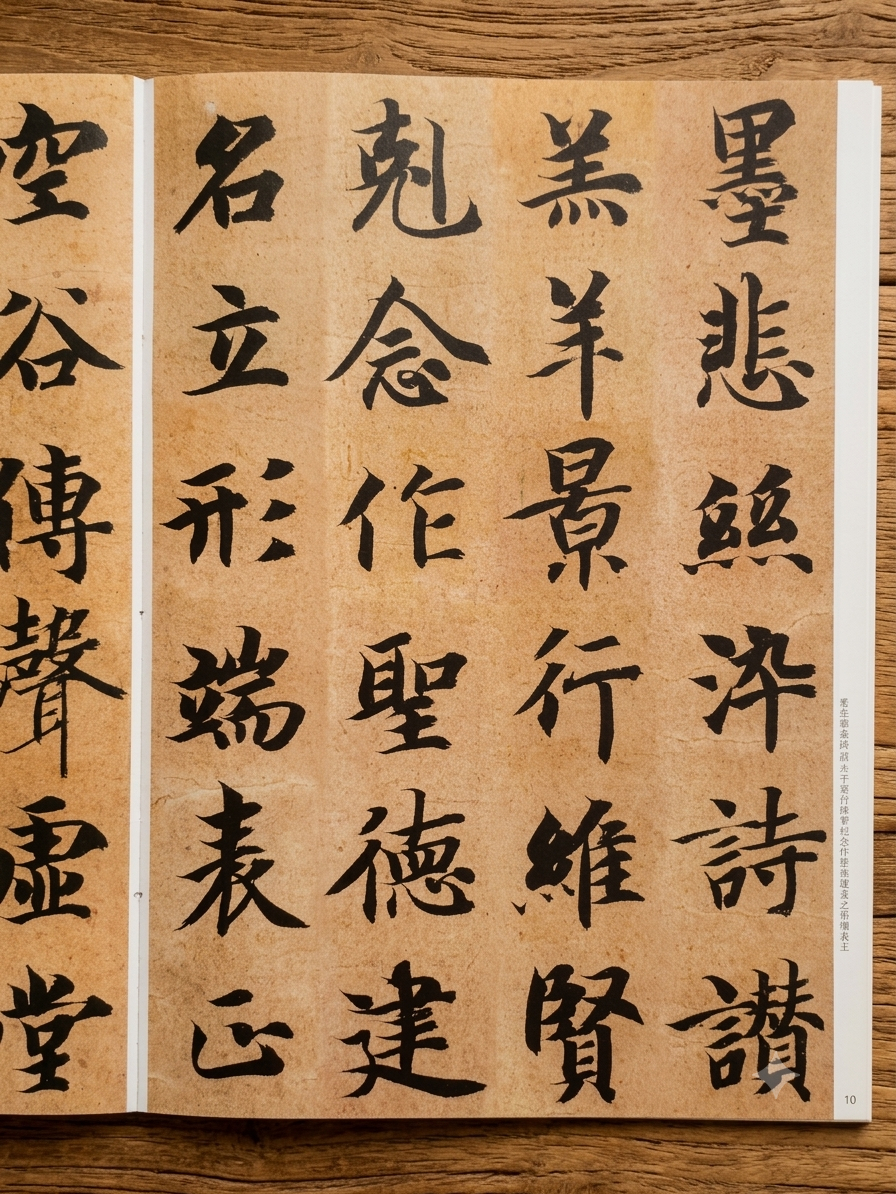 墨悲絲染詩讃
羔羊景行維賢
剋念作聖德建
名立形端表正
空谷傳聲虛堂
10